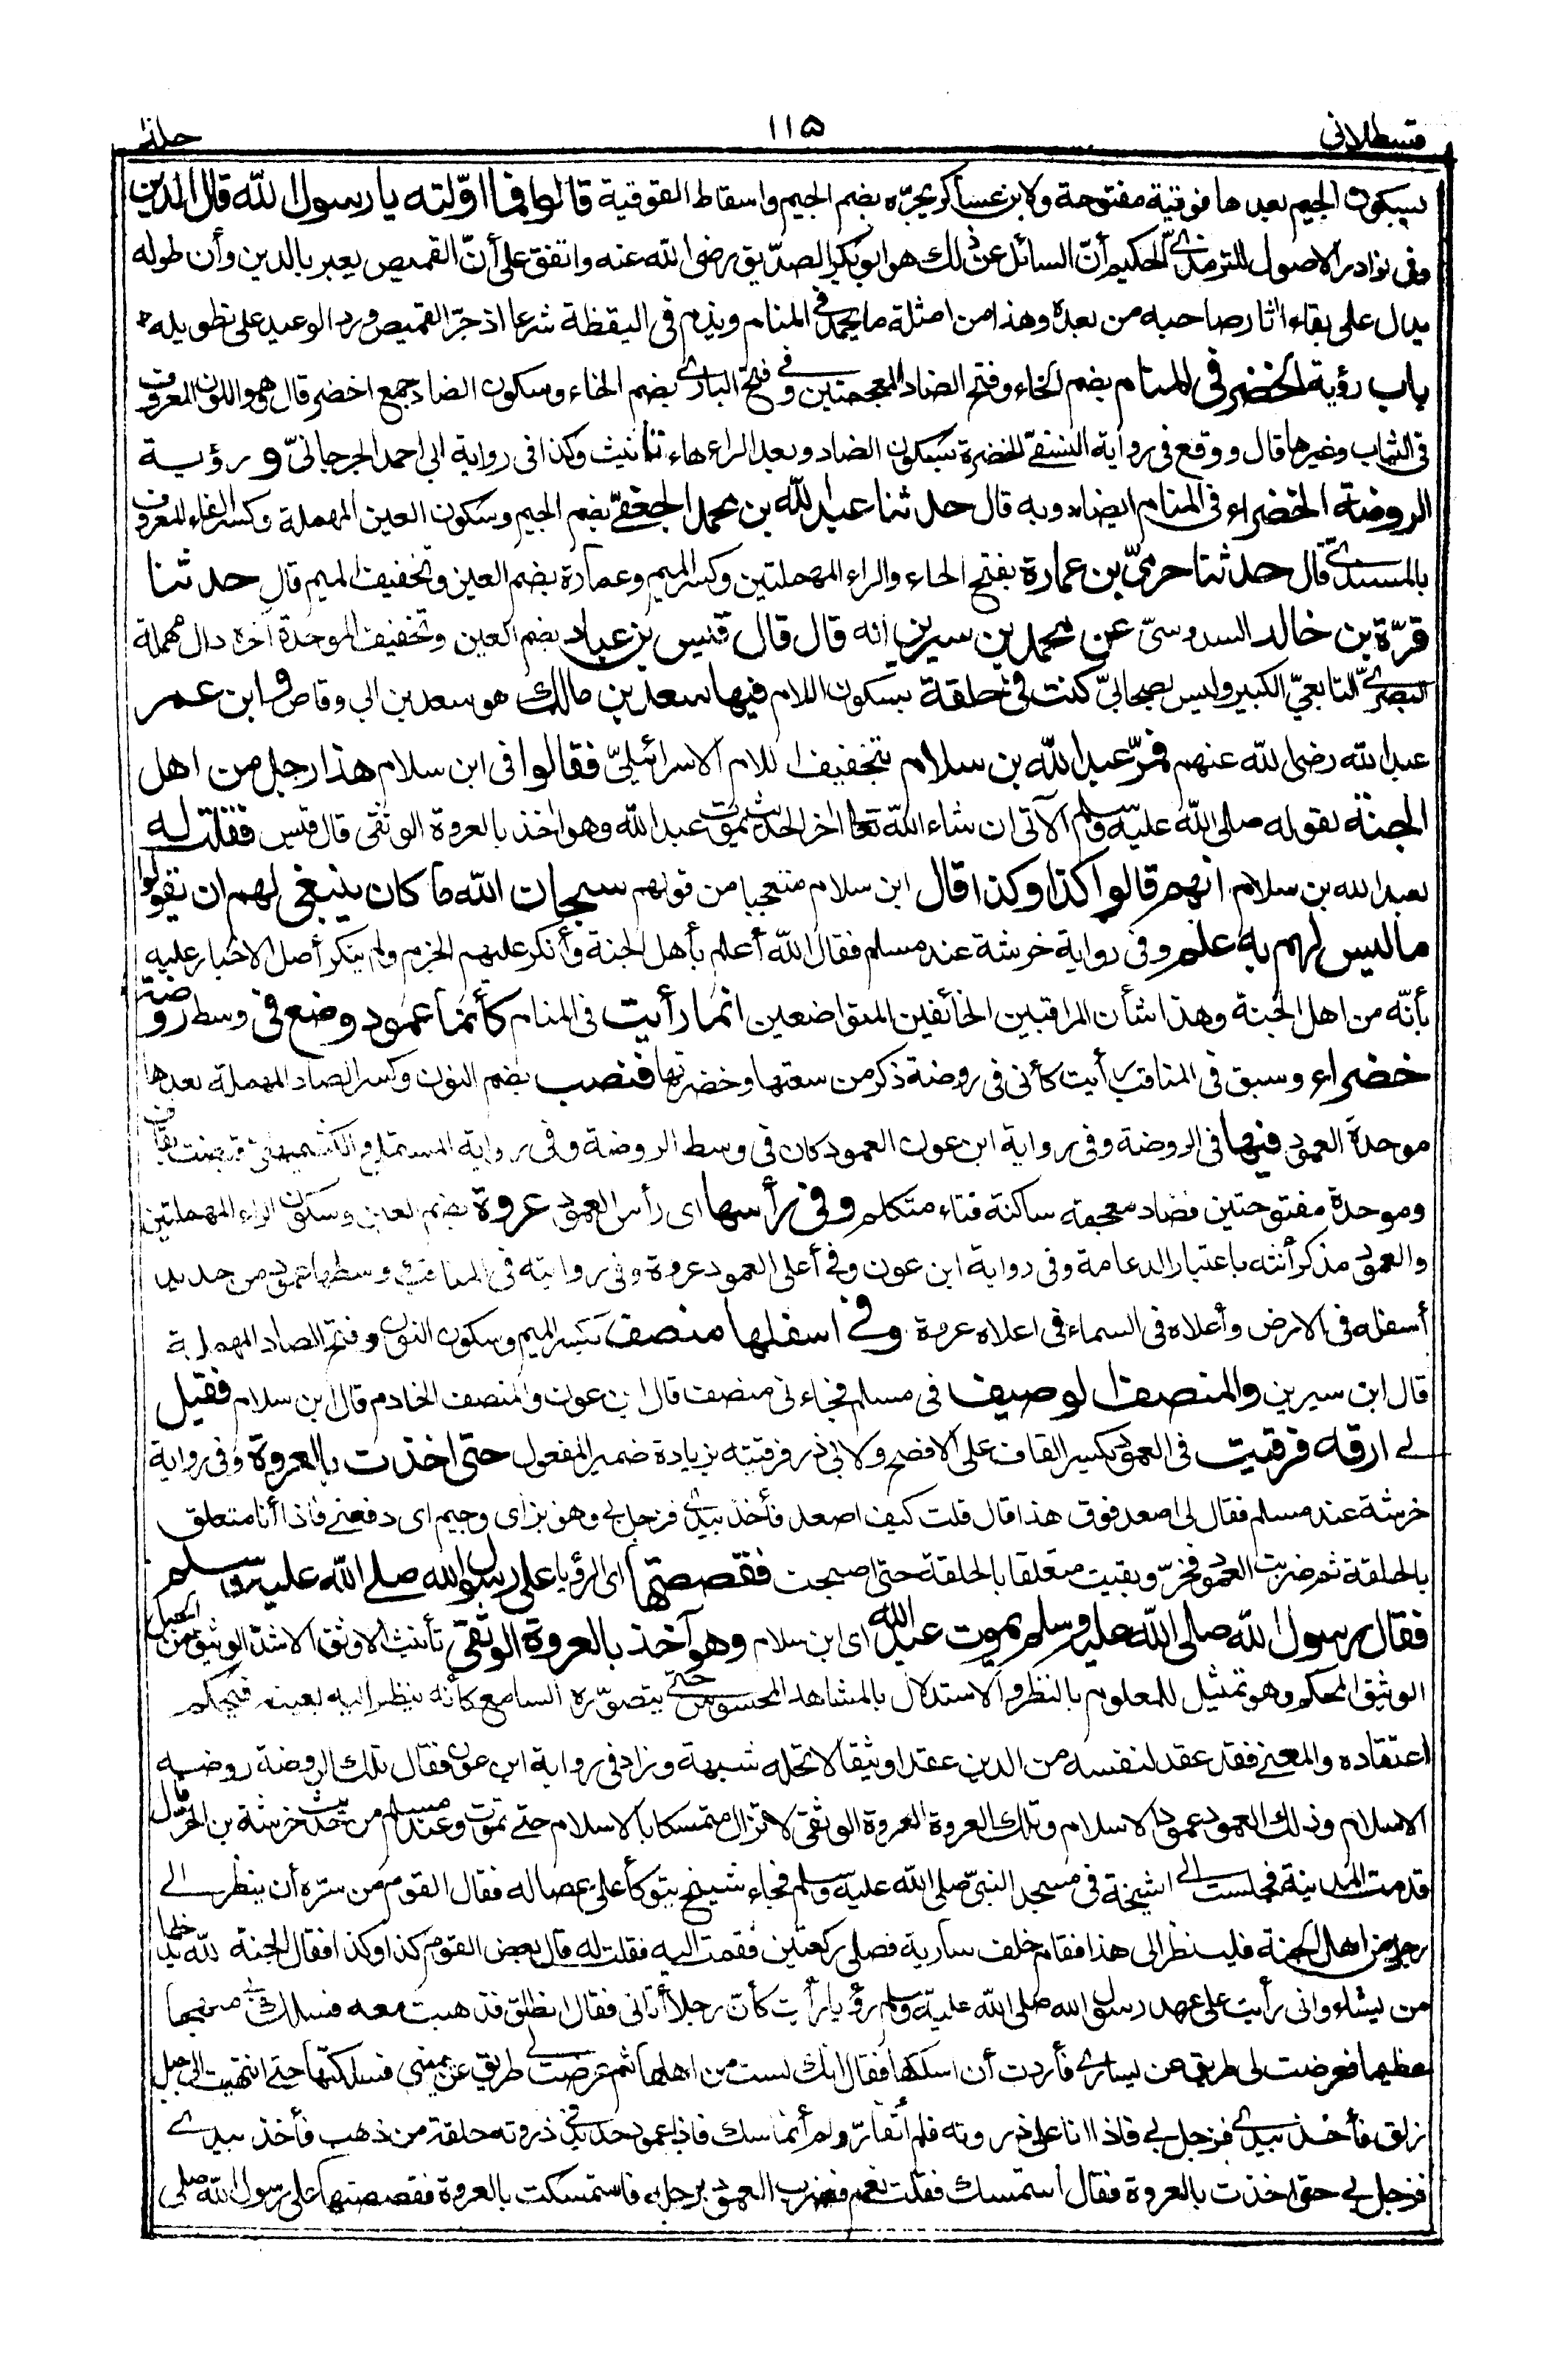 قسطلانى ١١٥ جلد
بسكون الجيم بعدها فوقية مفتوحة ولابن عساكر يجرّه بضم الجيم واسقاط الفوقية قالوا فما اوّلته يا رسول الله قال الدين
وفى نوادر الاصول للترمذى الحكيم أنّ السائل عن ذلك هو ابو بكر الصدّيق رضى الله عنه واتفق على أنّ القميص يعبر بالدين وأن طوله
يدل على بقاء اثار صاحبه من بعده وهذا من امثلة ما يحمد فى المنام ويذم فى اليقظة شرعا اذ جرّ القميص ورد الوعيد على تطويله
باب رؤية الخضر فى المنام بضم الخاء وفتح الضاد المعجمتين وفى فتح البارى بضم الخاء وسكون الضاد جمع اخضر قال وهو اللون المعروف
فى الثياب وغيرها قال ووقع فى رواية النسفىّ الخضرة بسكون الضاد وبعد الراء هاء تأنيث وكذا فى رواية ابى احمد الجرجانىّ و رؤية
الروضة الخضراء فى المنام ايضا وبه قال حدثنا عبد الله بن محمد الجعفىّ بضم الجيم وسكون العين المهملة وكسر الفاء المعروف
بالمسندىّ قال حدثنا حرمىّ بن عمارة بفتح الحاء والراء المهملتين وكسر الميم وعمارة بضم العين وتخفيف الميم قال حدثنا
قرّة بن خالد السدوسىّ عن محمد بن سيرين انه قال قال قيس بن عباد بضم العين وتخفيف الموحدة اخره دال مهملة
البصرىّ التابعىّ الكبير وليس بصحابىّ كنت فى حلقة بسكون اللام فيها سعد بن مالك هو سعد بن ابى وقاص و ابن عمر
عبد الله رضى الله عنهم فمرّ عبد الله بن سلام بتخفيف اللام الاسرائيلىّ فقالوا فى ابن سلام هذا رجل من اهل
الجنة لقوله صلى الله عليه وسلم الآتى ان شاء الله تعالى اخر الحديث يموت عبد الله وهو اخذ بالعروة الوثقى قال قيس فقلت له
لعبد الله بن سلام انهم قالوا كذا وكذا قال ابن سلام متعجبا من قولهم سبحان الله ما كان ينبغى لهم ان يقولوا
ما ليس لهم به علم وفى رواية خرشة عند مسلم فقال الله أعلم بأهل الجنة وأنكر عليهم الجزم ولم ينكر أصل الاخبار عليه
بأنّه من اهل الجنة وهذا شأن المراقبين الخائفين المتواضعين انما رأيت فى المنام كأنما عمود وضع فى وسط روضة
خضراء وسبق فى المناقب رأيت كأنى فى روضة ذكر من سعتها وخضرتها فنصب بضم النون وكسر الصاد المهملة بعدها
موحدة العمود فيها فى الروضة وفى رواية ابن عون العمود كان فى وسط الروضة وفى رواية المستملى والكشميهنى قبضت بقاف
وموحدة مفتوحتين فضاد معجمة ساكنة فتاء متكلم وفى رأسها اى رأس العمود عروة بضم العين وسكون الراء المهملتين
والعمود مذكر أنثه باعتبار الدعامة وفى رواية ابن عون وفى أعلى العمود عروة وفى روايته فى المناقب وسطها عمود من حديد
أسفله فى الارض وأعلاه فى السماء فى اعلاه عروة وفى اسفلها منصف بكسر الميم وسكون النون وفتح الصاد المهملة
قال ابن سيرين والمنصف الوصيف فى مسلم فجاءنى منصف قال ابن عون والمنصف الخادم قال ابن سلام فقيل
لى ارقه فرقيت فى العمود بكسر القاف على الافصح ولابى ذر فرقيته بزيادة ضمير المفعول حتى اخذت بالعروة وفى رواية
خرشة عند مسلم فقال لى اصعد فوق هذا قال قلت كيف اصعد فأخذ بيدى فزجل بى وهو بزاى وجيم اى دفعنى فاذا أنا متعلق
بالحلقة ثم ضربت العمود فخرّ وبقيت متعلقا بالحلقة حتى اصبحت فقصصتها اى الرؤيا على رسول الله صلى الله عليه وسلم
فقال رسول الله صلى الله عليه وسلم يموت عبد الله اى ابن سلام وهو آخذ بالعروة الوثقى تأنيث الاوثق الاشد الوثيق من الحبل
الوثيق المحكم وهو تمثيل للمعلوم بالنظر والاستدلال بالمشاهد المحسوس حتى يتصوّره السامع كأنه ينظر اليه بعينه فيحكم
اعتقاده والمعنى فقد عقد لنفسه من الدين عقدا وثيقا لا تحله شبهة وزاد فى رواية ابن عون فقال تلك الروضة روضة
الاسلام وذلك العمود عمود الاسلام وتلك العروة العروة الوثقى لا تزال متمسكا بالاسلام حتى تموت وعند مسلم من حديث خرشة بن الحر قال
قدمت المدينة فجلست الى اشيخة فى مسجد النبىّ صلى الله عليه وسلم فجاء شيخ يتوكأ على عصا له فقال القوم من سرّه أن ينظر الى
رجل من اهل الجنة فلينظر الى هذا فقام خلف سارية فصلى ركعتين فقمت اليه فقلت له قال بعض القوم كذا وكذا فقال الجنة لله يدخلها
من يشاء وانى رأيت على عهد رسول الله صلى الله عليه وسلم رؤيا رأيت كأنّ رجلا أتانى فقال انطلق فذهبت معه فسلك بى منهجا
عظيما فعرضت لى طريق عن يسارى فأردت أن اسلكها فقال انك لست من اهلها ثم عرضت لى طريق عن يمينى فسلكتها حتى انتهيت الى جبل
زلق فأخذ بيدى فزجل بى فاذا انا على ذروته فلم أتقارّ ولم أتماسك فاذا عمود حديد فى ذروته حلقة من ذهب فأخذ بيدى
فزجل بى حتى اخذت بالعروة فقال استمسك فقلت نعم فضرب العمود برجله فاستمسكت بالعروة فقصصتها على رسول الله صلى